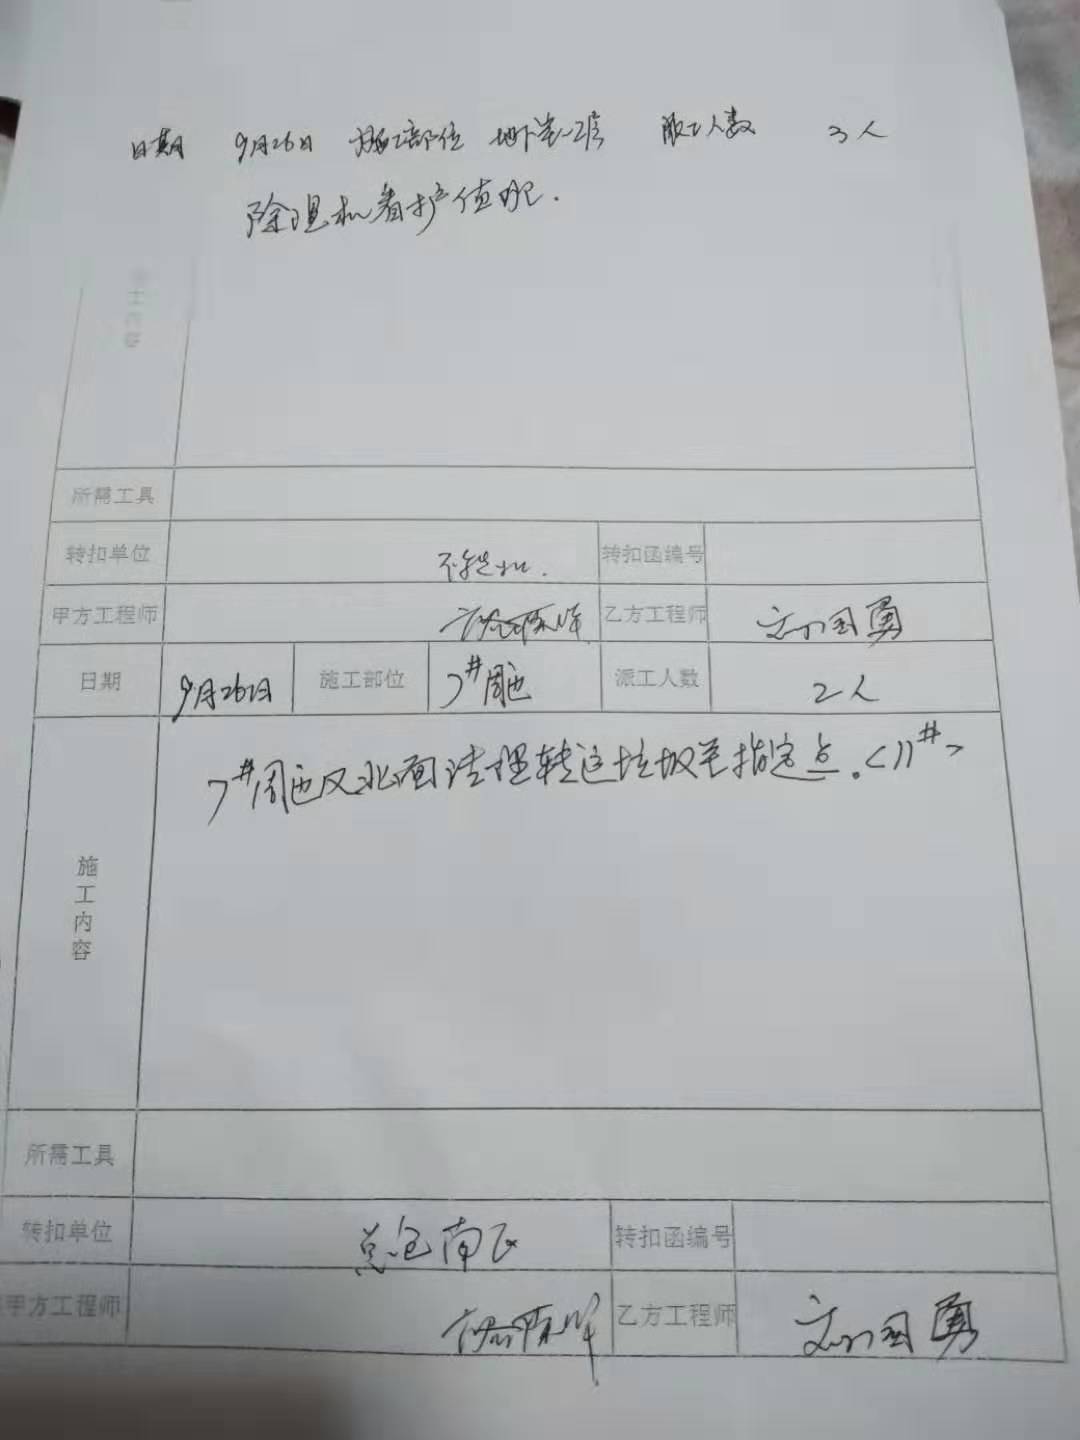 日期 9月26日 施工部位 地下室一二层 派工人数 3人
除湿机看护值班.
所需工具
转扣单位 不转扣. 转扣函编号
甲方工程师 乙方工程师 刘国勇
日期 9月26日 施工部位 7#周边 派工人数 2人
施工内容 7#周边及北面清理转运垃圾至指定点.<11#>
所需工具
转扣单位 总包南区 转扣函编号
甲方工程师 乙方工程师 刘国勇